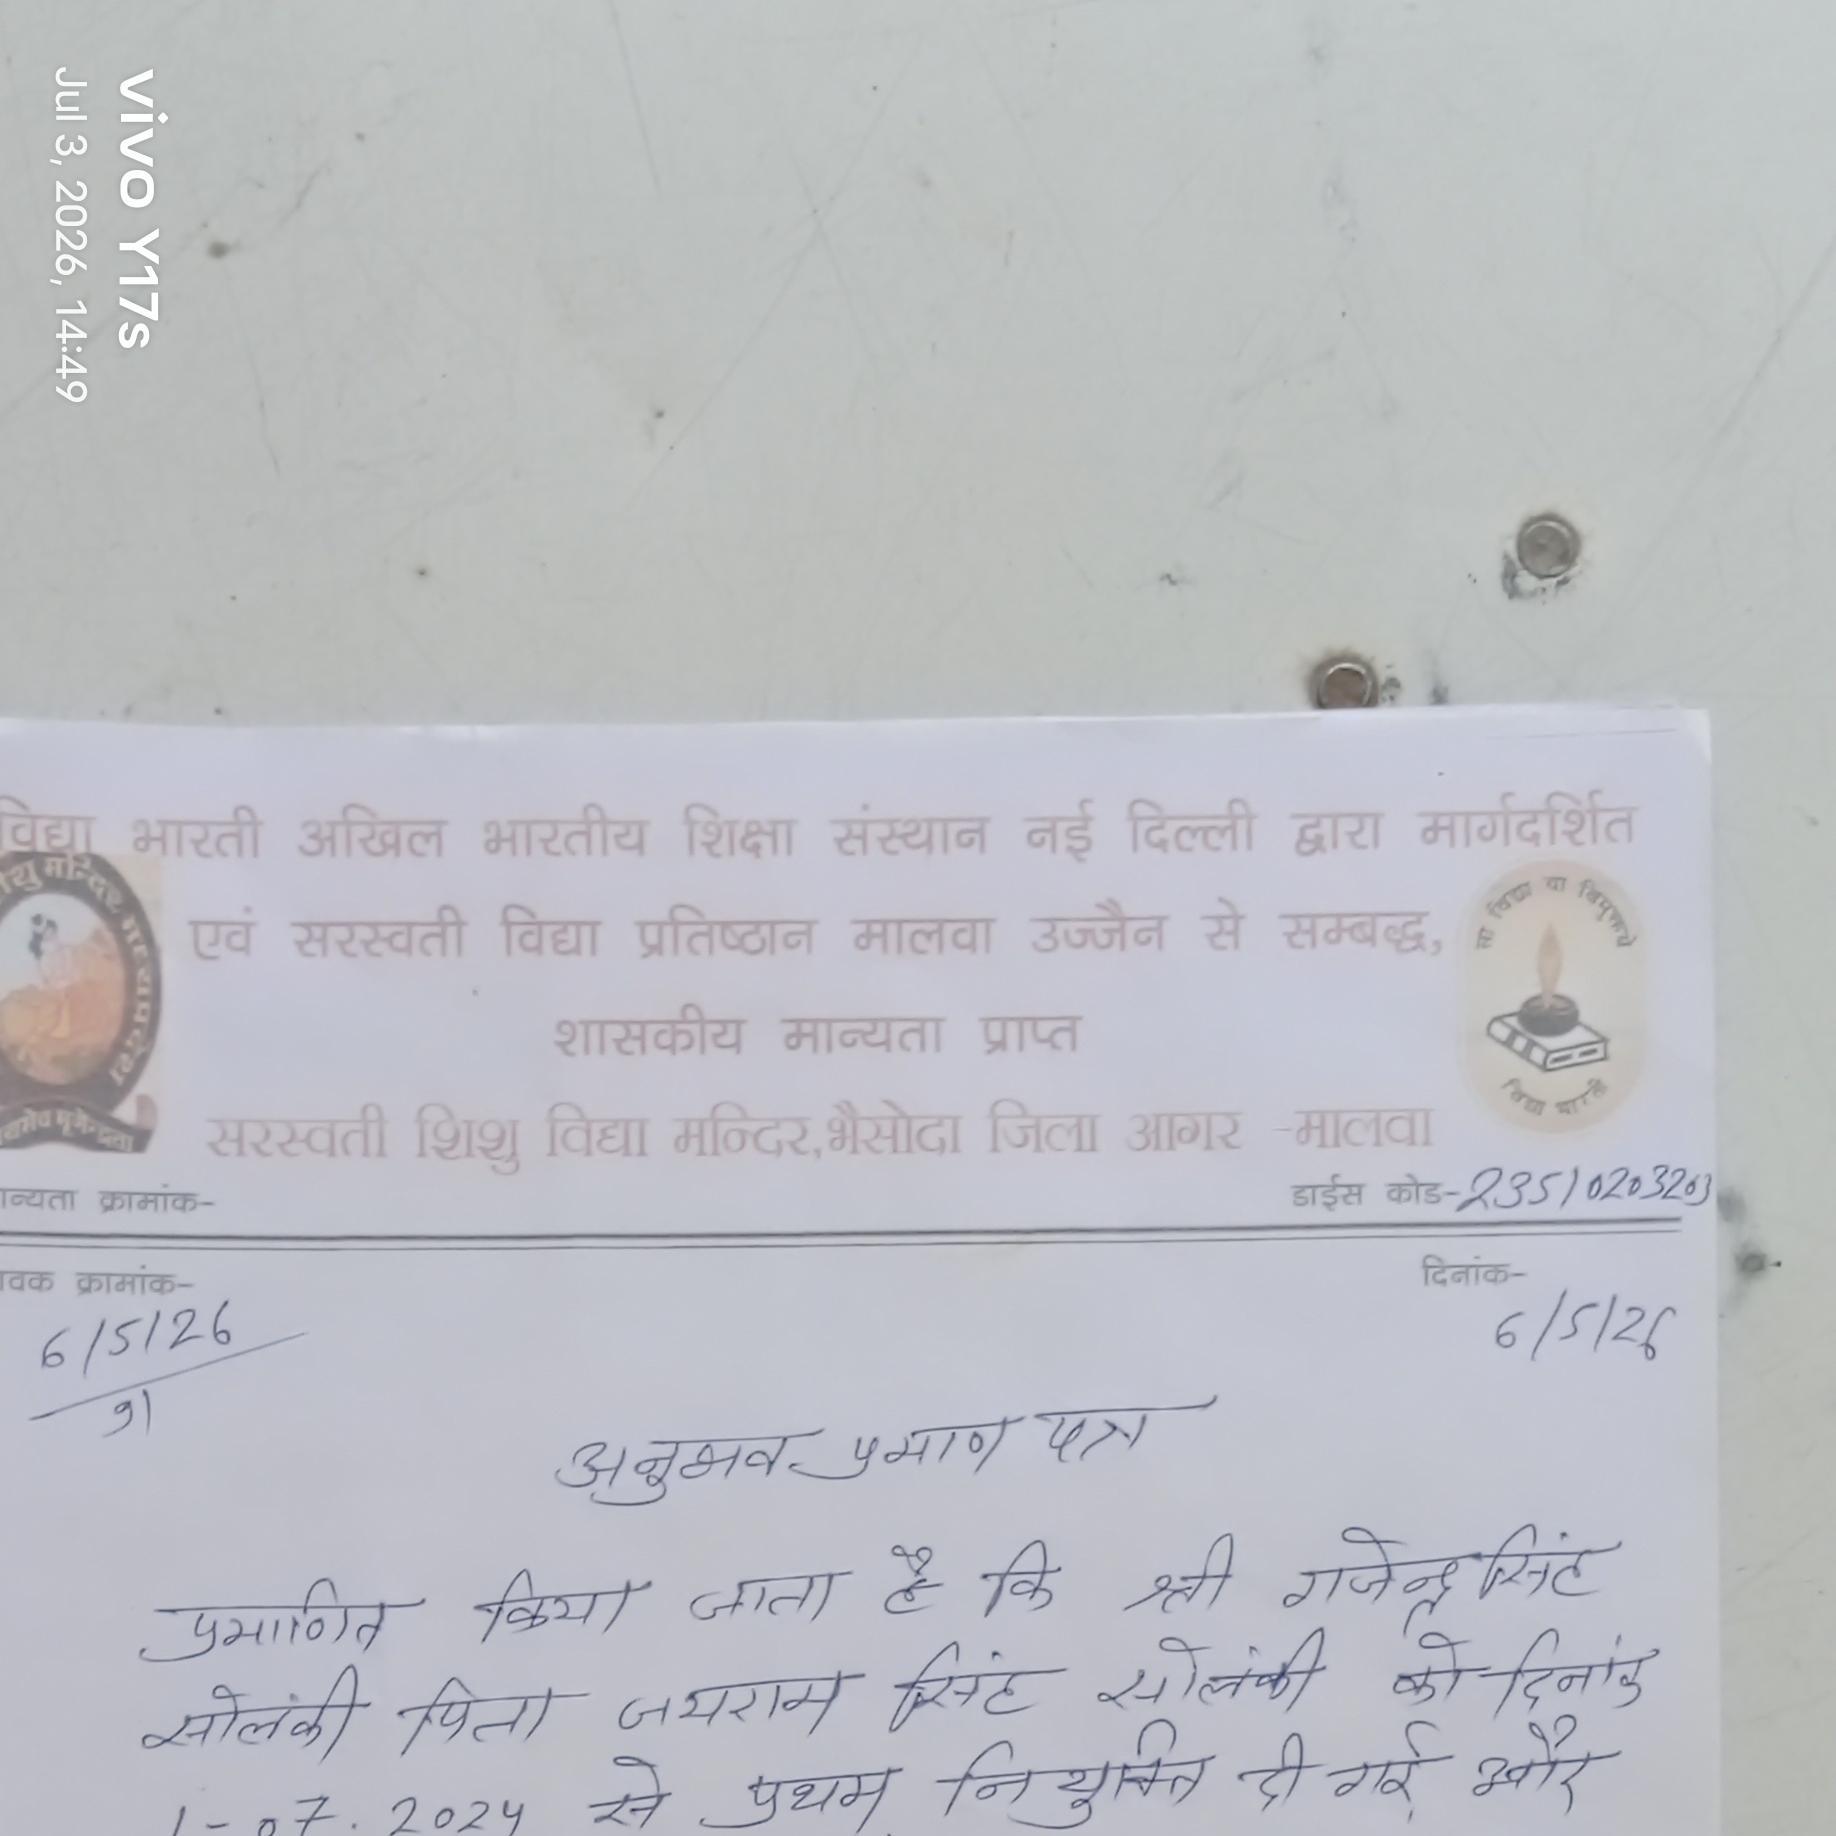 vivo Y17s
Jul 3, 2026, 14:49
विद्या भारती अखिल भारतीय शिक्षा संस्थान नई दिल्ली द्वारा मार्गदर्शित
एवं सरस्वती विद्या प्रतिष्ठान मालवा उज्जैन से सम्बद्ध,
शासकीय मान्यता प्राप्त
सरस्वती शिशु विद्या मन्दिर,भैसोदा जिला आगर -मालवा
सा विद्या या विमुक्तये
विद्या भारती
शिशु मन्दिर मध्यप्रदेश
मान्यता क्रामांक-
डाईस कोड-23510203203
क्रामांक-
दिनांक-
6/5/26
91
6/5/26
अनुभव प्रमाण पत्र
प्रमाणित किया जाता है कि श्री गजेन्द्र सिंह
सोलंकी पिता जयराम सिंह सोलंकी को दिनांक
1-07.2024 से प्रथम नियुक्ति दी गई और